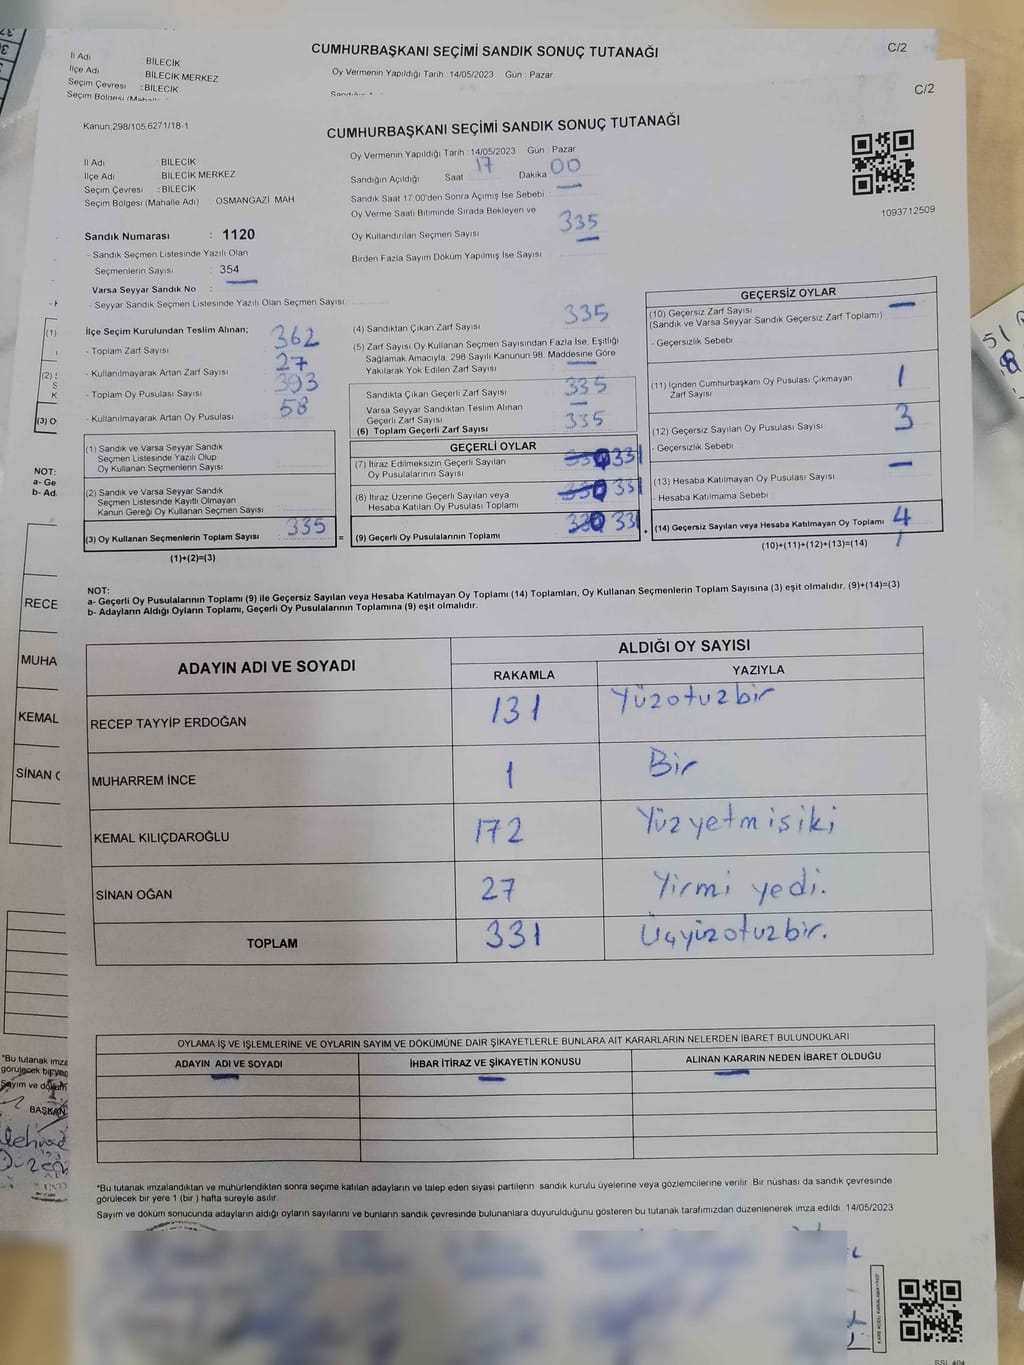 İl Adı BİLECİK
İlçe Adı BİLECİK MERKEZ
Seçim Çevresi : BİLECİK
CUMHURBAŞKANI SEÇİMİ SANDIK SONUÇ TUTANAĞI
C/2
Oy Vermenin Yapıldığı Tarih : 14/05/2023 Gün : Pazar
C/2
Kanun:298/105,6271/18-1
CUMHURBAŞKANI SEÇİMİ SANDIK SONUÇ TUTANAĞI
1093712509
İl Adı : BİLECİK
İlçe Adı : BİLECİK MERKEZ
Seçim Çevresi : BİLECİK
Seçim Bölgesi (Mahalle Adı) : OSMANGAZİ MAH
Oy Vermenin Yapıldığı Tarih : 14/05/2023 Gün : Pazar
Sandığın Açıldığı Saat 17 Dakika 00
Sandık Saat 17:00'den Sonra Açımış İse Sebebi —
Oy Verme Saati Bitiminde Sırada Bekleyen ve
Oy Kullandırılan Seçmen Sayısı 335
Birden Fazla Sayım Döküm Yapılmış İse Sayısı —
Sandık Numarası : 1120
- Sandık Seçmen Listesinde Yazılı Olan
Seçmenlerin Sayısı : 354
Varsa Seyyar Sandık No : —
- Seyyar Sandık Seçmen Listesinde Yazılı Olan Seçmen Sayısı:
İlçe Seçim Kurulundan Teslim Alınan;
- Toplam Zarf Sayısı 362
- Kullanılmayarak Artan Zarf Sayısı 27
- Toplam Oy Pusulası Sayısı 393
- Kullanılmayarak Artan Oy Pusulası 58
(1) Sandık ve Varsa Seyyar Sandık
Seçmen Listesinde Yazılı Olup
Oy Kullanan Seçmenlerin Sayısı
(2) Sandık ve Varsa Seyyar Sandık
Seçmen Listesinde Kayıtlı Olmayan
Kanun Gereği Oy Kullanan Seçmen Sayısı
(3) Oy Kullanan Seçmenlerin Toplam Sayısı 335
(1)+(2)=(3)
(4) Sandıktan Çıkan Zarf Sayısı 335
(5) Zarf Sayısı Oy Kullanan Seçmen Sayısından Fazla İse, Eşitliği
Sağlamak Amacıyla, 298 Sayılı Kanunun 98. Maddesine Göre
Yakılarak Yok Edilen Zarf Sayısı —
Sandıkta Çıkan Geçerli Zarf Sayısı 335
Varsa Seyyar Sandıktan Teslim Alınan
Geçerli Zarf Sayısı —
(6) Toplam Geçerli Zarf Sayısı 335
GEÇERLİ OYLAR
(7) İtiraz Edilmeksizin Geçerli Sayılan
Oy Pusulalarının Sayısı 331
(8) İtiraz Üzerine Geçerli Sayılan veya
Hesaba Katılan Oy Pusulası Toplamı 331
(9) Geçerli Oy Pusulalarının Toplamı 331
GEÇERSİZ OYLAR
(10) Geçersiz Zarf Sayısı —
(Sandık ve Varsa Seyyar Sandık Geçersiz Zarf Toplamı)
- Geçersizlik Sebebi
(11) İçinden Cumhurbaşkanı Oy Pusulası Çıkmayan
Zarf Sayısı 1
(12) Geçersiz Sayılan Oy Pusulası Sayısı 3
- Geçersizlik Sebebi
(13) Hesaba Katılmayan Oy Pusulası Sayısı —
- Hesaba Katılmama Sebebi
(14) Geçersiz Sayılan veya Hesaba Katılmayan Oy Toplamı 4
(10)+(11)+(12)+(13)=(14)
NOT:
a- Geçerli Oy Pusulalarının Toplamı (9) ile Geçersiz Sayılan veya Hesaba Katılmayan Oy Toplamı (14) Toplamları, Oy Kullanan Seçmenlerin Toplam Sayısına (3) eşit olmalıdır. (9)+(14)=(3)
b- Adayların Aldığı Oyların Toplamı, Geçerli Oy Pusulalarının Toplamına (9) eşit olmalıdır.
ADAYIN ADI VE SOYADI
ALDIĞI OY SAYISI
RAKAMLA YAZIYLA
RECEP TAYYİP ERDOĞAN 131 Yüzotuzbir
MUHARREM İNCE 1 Bir
KEMAL KILIÇDAROĞLU 172 Yüzyetmisiki
SİNAN OĞAN 27 Yirmi yedi.
TOPLAM 331 Üçyüzotuzbir.
OYLAMA İŞ VE İŞLEMLERİNE VE OYLARIN SAYIM VE DÖKÜMÜNE DAİR ŞİKAYETLERLE BUNLARA AİT KARARLARIN NELERDEN İBARET BULUNDUKLARI
ADAYIN ADI VE SOYADI İHBAR İTİRAZ VE ŞİKAYETİN KONUSU ALINAN KARARIN NEDEN İBARET OLDUĞU
— — —
*Bu tutanak imzalandıktan ve mühürlendikten sonra seçime katılan adayların ve talep eden siyasi partilerin sandık kurulu üyelerine veya gözlemcilerine verilir. Bir nüshası da sandık çevresinde
görülecek bir yere 1 (bir) hafta süreyle asılır.
Sayım ve döküm sonucunda adayların aldığı oyların sayılarını ve bunların sandık çevresinde bulunanlara duyurulduğunu gösteren bu tutanak tarafımızdan düzenlenerek imza edildi. 14/05/2023